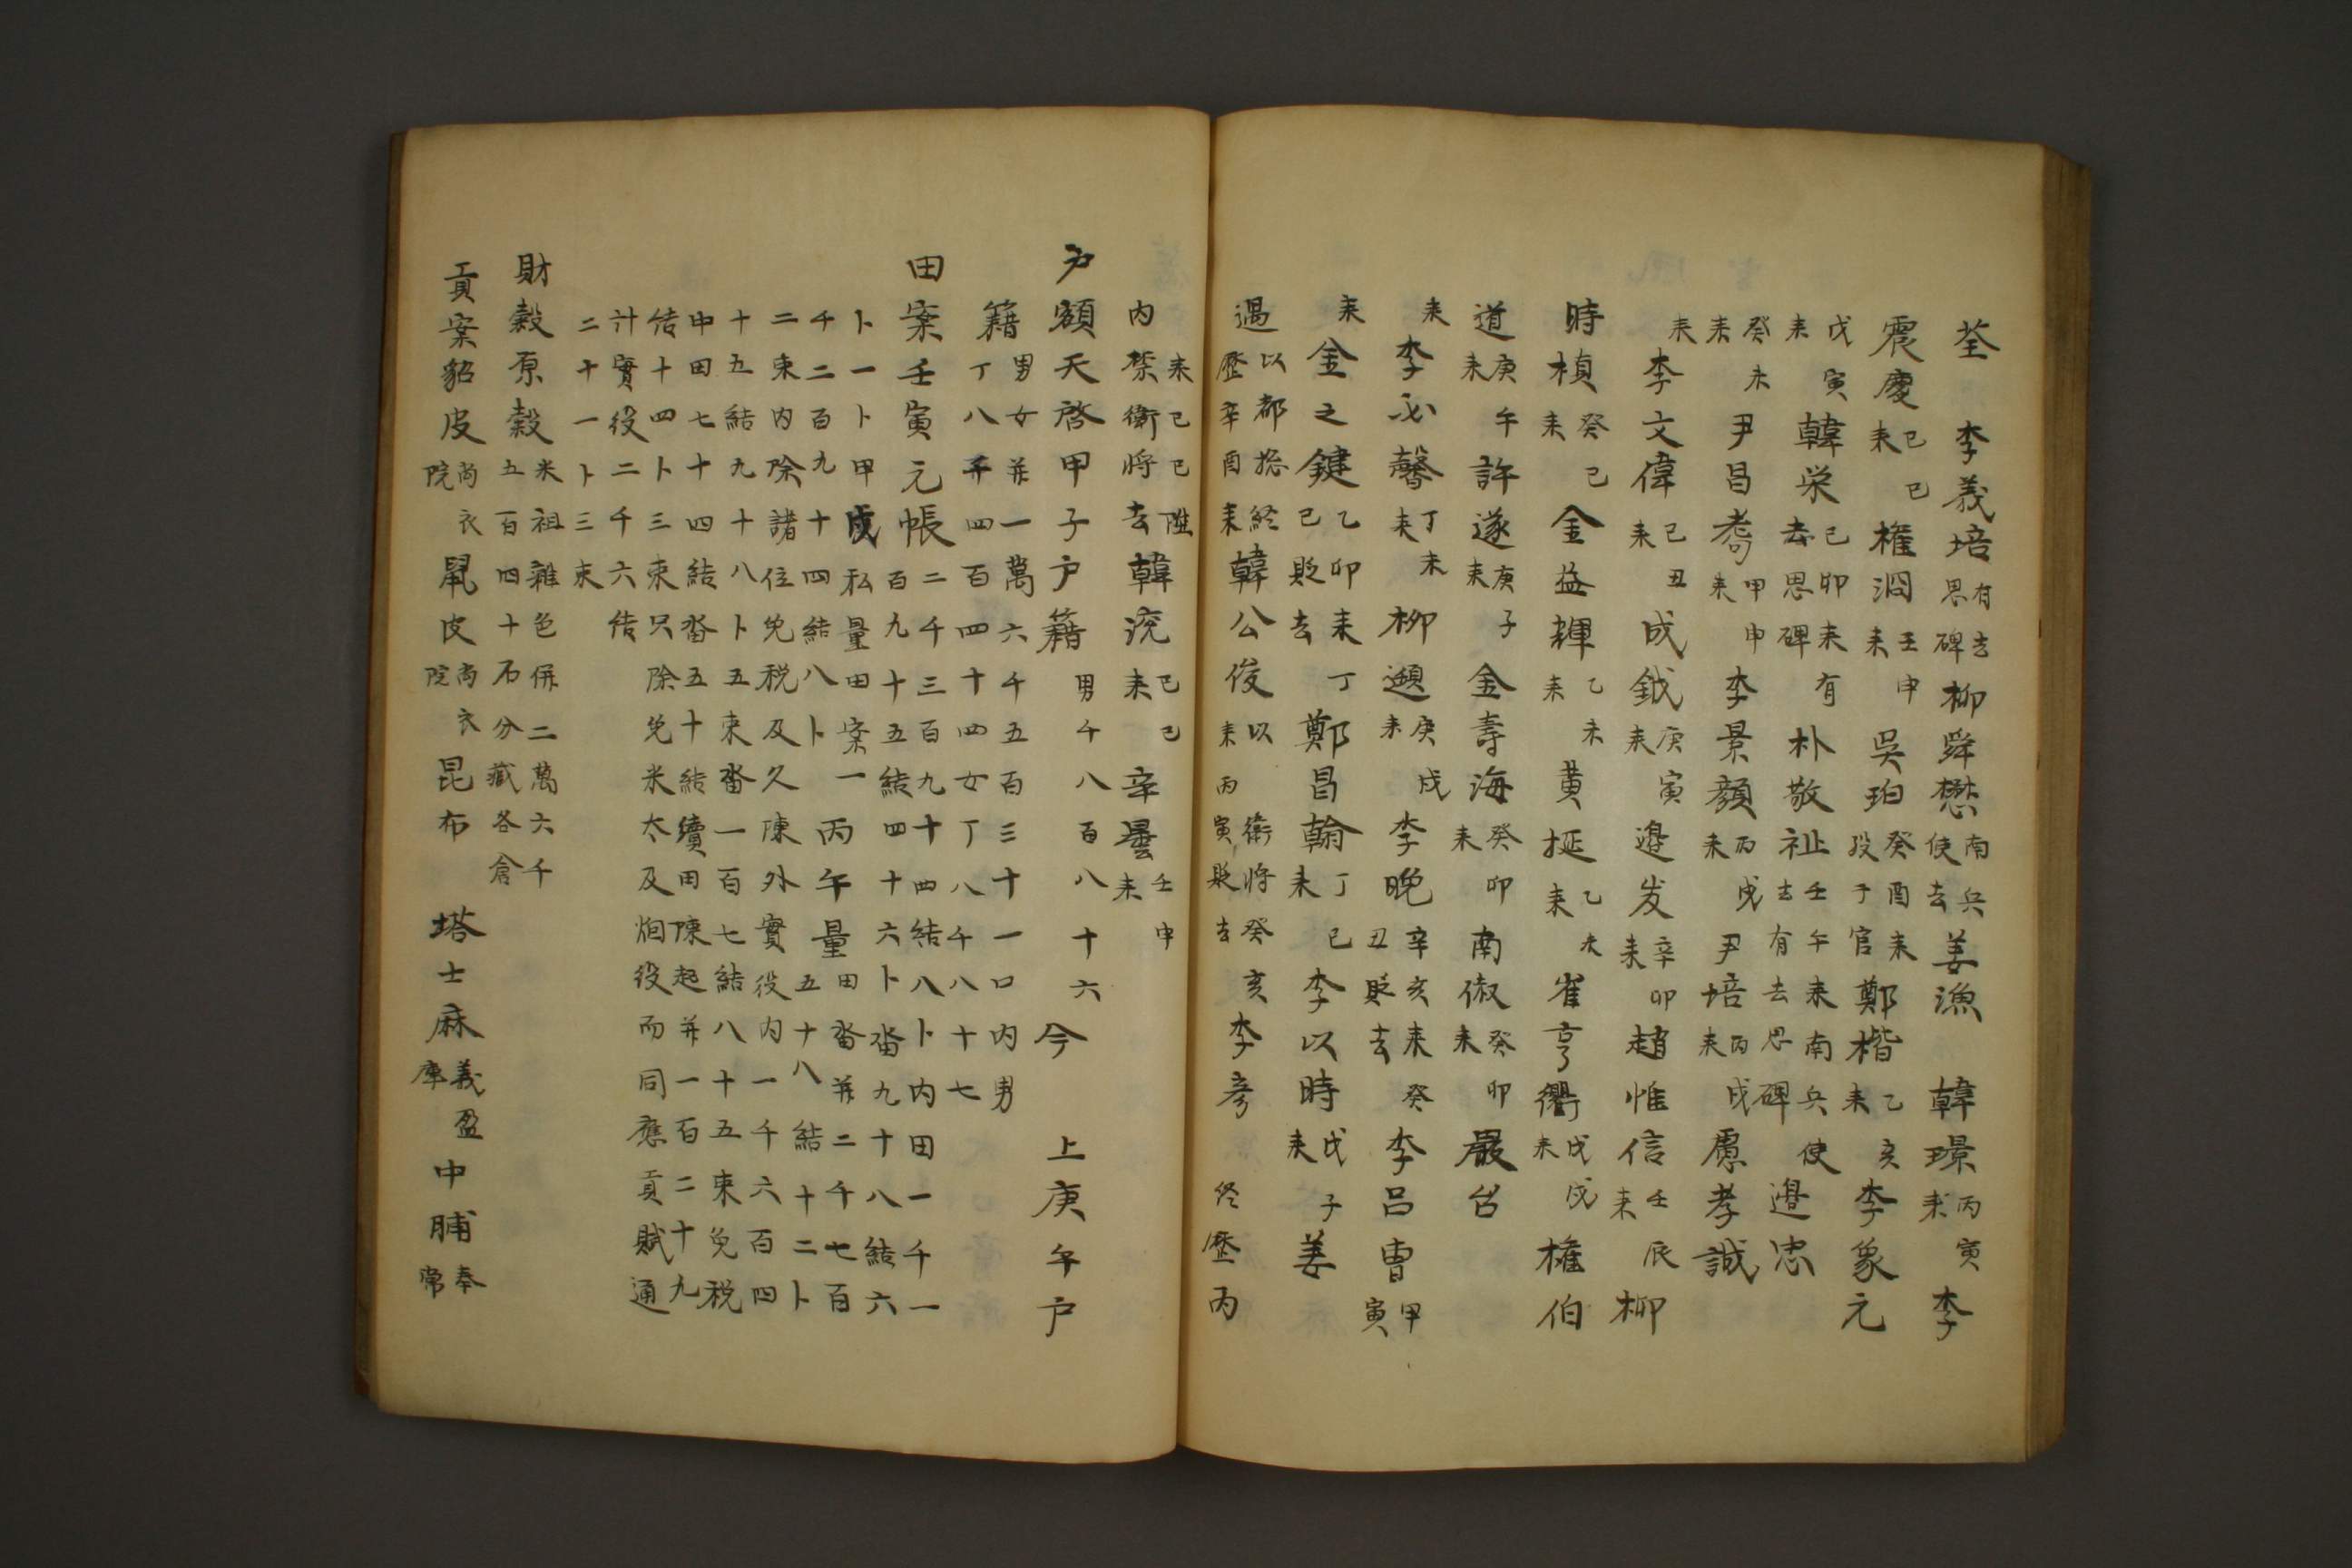 荃 李義培有去思碑 柳舜懋南兵使去 姜漁 韓璟丙寅來 李
震慶己巳來 權滔壬申來 吳珀癸酉來歿于官 鄭楷乙亥來 李象元
戊寅來 韓栄己卯來有去思碑 朴敬祉壬午來南兵使去有去思碑 邉忠
癸未來 尹昌耇甲申來 李景顔丙戌來 尹培丙戌來 慮孝誠
來 李文偉己丑來 成鉞庚寅來 邉岌辛卯來 趙惟信壬辰來 柳
時楨癸巳來 金益輝乙未來 黄挻乙未來 崔亨衢戊戌來 權伯
道庚午來 許遂庚子來 金壽海癸卯來 南俶癸卯來 嚴台
來 李必馨丁未來 柳 庚戌來 李晚辛亥來癸丑貶去 李呂曺甲寅
來 金之鍵乙卯來丁巳貶去 鄭昌翰丁巳來 李以時戊子來 姜
遇以都摠經歷辛酉來 韓公俊以衛將癸亥來丙寅貶去 李孝 终歷丙
來己巳陞內禁衛將去 韓浣己巳來 辛曇壬申來
户額天啓甲子户籍男千八百八十六 今 上庚午户
籍男女并一萬六千五百三十一口內男
丁八千四百四十四女丁八千八十七
田案壬寅元帳二千三百九十四結八卜內田一千一
百九十五結四十六卜畓九十八結六
卜一卜甲戌私量田案一
千二百九十四結八卜 丙午量田畓并二千七百
五十八結十二卜
二束內除諸位免税及久陳外實役內一千六百四
十五結九十八卜五束畓一百七結八十五束免税
申田七十四結畓五十結續田陳起并一百二十九
結十四卜三束只除免米太及烟役而同應貢賦通
計實役二千六結
二十一卜三束
財穀原穀米租雜色併二萬六千
五百四十石分藏各倉
貢案貂皮尚衣院 鼠皮尚衣院 昆布 塔士麻義盈庫 中脯奉常